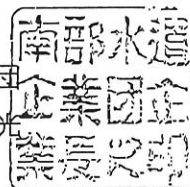 南部水道
企業団企
業長之印